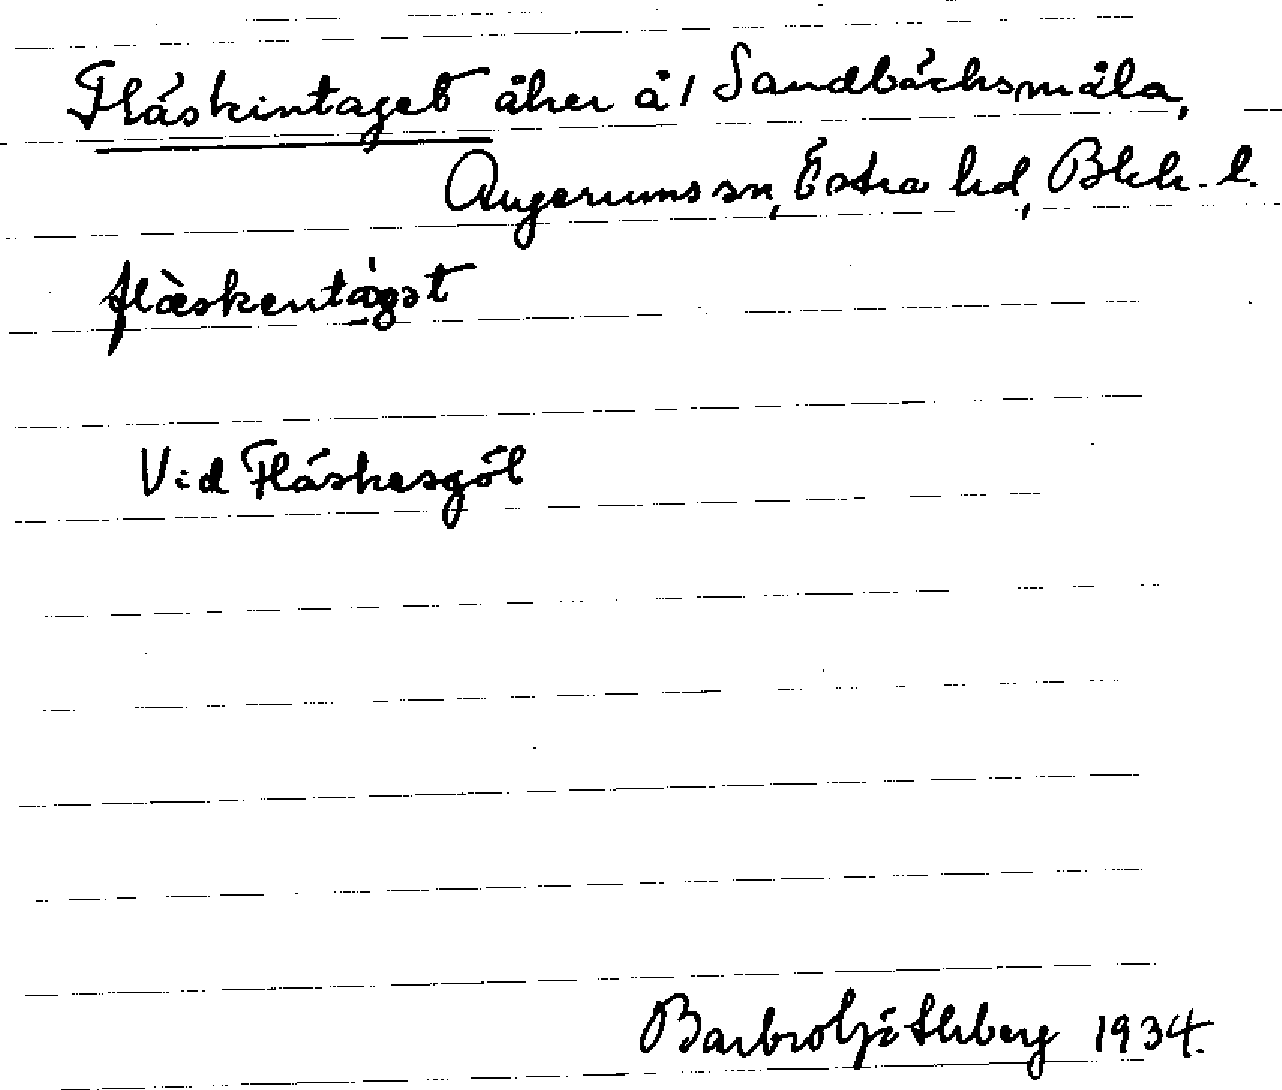 Fläskintaget åker å 1 Sandbäcksmåla,
Augerums sn, Östra hd, Blek. l.
flàskentágət
Vid Fläskesgöl
Barbro 1934.